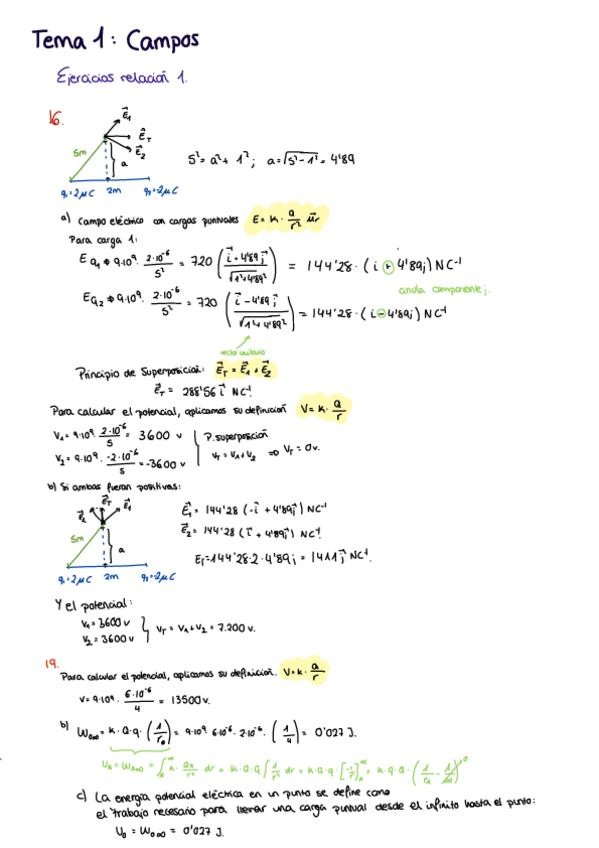 Tema 1: Campos
Ejercicios relación 1.
16.
E⃗1
E⃗T
E⃗2
5m
a
q=2μC 2m q=-2μC
5² = a² + 1² ; a = √5² - 1² = 4'89
a) Campo eléctrico con cargas puntuales E = K · Q/r² u⃗r
Para carga 1:
E q1 → 9·10⁹ · 2·10⁻⁶/5² = 720 (i⃗ + 4'89j⃗/√1²+4'89²) = 144'28 · (i + 4'89j) NC⁻¹
anula componente j.
E q2 → 9·10⁹ · 2·10⁻⁶/5² = 720 (i⃗ - 4'89j⃗/√1²+4'89²) = 144'28 · (i - 4'89j) NC⁻¹
vector unitario
Principio de Superposición: E⃗T = E⃗1 + E⃗2
E⃗T = 288'56 i⃗ NC⁻¹
Para calcular el potencial, aplicamos su definición V = K · Q/r
V1 = 9·10⁹ · 2·10⁻⁶/5 = 3600 v
P. superposición
V2 = 9·10⁹ · -2·10⁻⁶/5 = -3600 v
VT = V1 + V2 ⇒ VT = 0v.
b) Si ambas fueran positivas:
E⃗2 E⃗T E⃗1
5m
a
q=2μC 2m q=2μC
E⃗1 = 144'28 (-i⃗ + 4'89j⃗) NC⁻¹
E⃗2 = 144'28 (i⃗ + 4'89j⃗) NC⁻¹
ET = 144'28 · 2 · 4'89j = 1411j⃗ NC⁻¹.
Y el potencial:
V1 = 3600 v
V2 = 3600 v
VT = V1 + V2 = 7.200 v.
19.
Para calcular el potencial, aplicamos su definición. V = K · Q/r
V = 9·10⁹ · 6·10⁻⁶/4 = 13500 v.
b) W0∞ = K · Q · q · (1/r0) = 9·10⁹ · 6·10⁻⁶ · 2·10⁻⁶ · (1/4) = 0'027 J.
c) La energía potencial eléctrica en un punto se define como
el trabajo necesario para llevar una carga puntual desde el infinito hasta el punto:
U0 = W0∞ = 0'027 J.